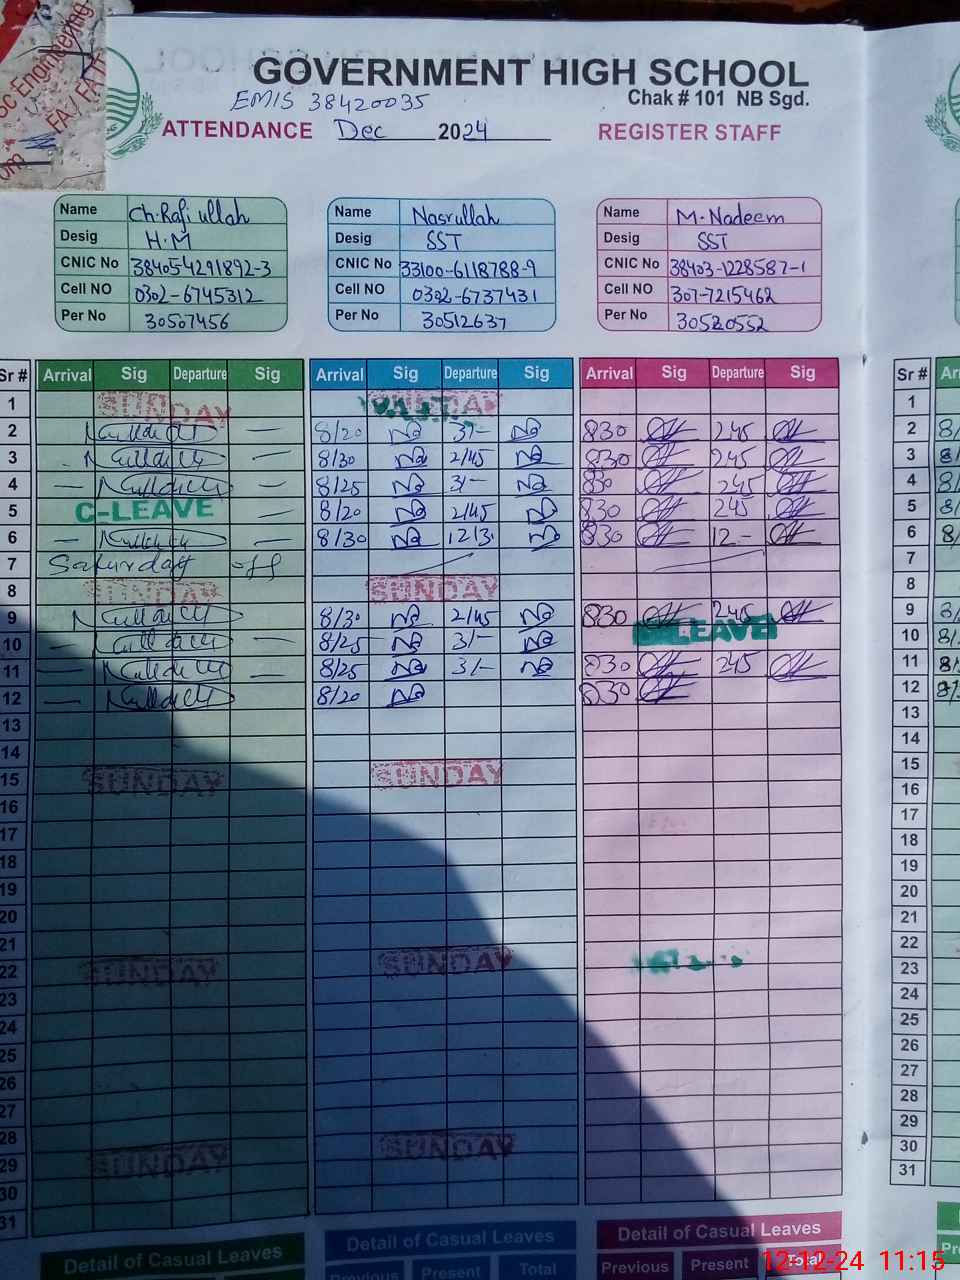 Sc Engineering
FA / FA IT
GOVERNMENT HIGH SCHOOL
EMIS 38420035
Chak # 101 NB Sgd.
ATTENDANCE Dec 2024 REGISTER STAFF
Name Ch. Rafi ullah
Desig H.M
CNIC No 384054291892-3
Cell NO 0302-6745312
Per No 30507456
Name Nasrullah
Desig SST
CNIC No 33100-6118788-9
Cell NO 0302-6737431
Per No 30512637
Name M. Nadeem
Desig SST
CNIC No 38403-1228587-1
Cell NO 307-7215462
Per No 30520552
Sr # Arrival Sig Departure Sig Arrival Sig Departure Sig Arrival Sig Departure Sig Sr #
1 SUNDAY 1
2 — 8/20 3/- 830 245 2
3 8/30 2/45 830 245 3
4 — — 8/25 3/- 830 245 4
5 C-LEAVE — 8/20 2/45 830 245 5
6 — — 8/30 12/3 830 12- 6
7 Saturday off 7
8 SUNDAY SUNDAY 8
9 8/30 2/45 830 245 9
10 — — 8/25 3/- LEAVE 10
11 — — 8/25 3/- 830 245 11
12 — 8/20 830 12
13 13
14 14
15 SUNDAY SUNDAY 15
16 16
17 17
18 18
19 19
20 20
21 21
22 SUNDAY SUNDAY 22
23 23
24 24
25 25
26 26
27 27
28 28
29 SUNDAY SUNDAY 29
30 30
31 31
Detail of Casual Leaves Detail of Casual Leaves Detail of Casual Leaves
Previous Present Total Previous Present Total
12-12-24 11:15